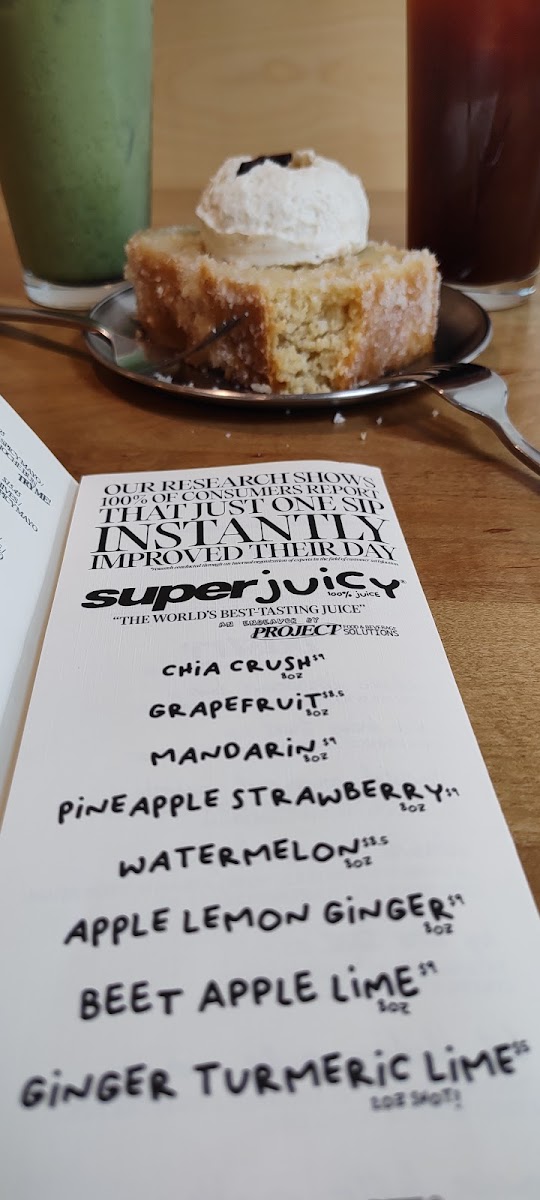 TRY ME!
MAYO
OUR RESEARCH SHOWS
100% OF CONSUMERS REPORT
THAT JUST ONE SIP
INSTANTLY
IMPROVED THEIR DAY
superjuicy®
100% JUICE
"THE WORLD'S BEST-TASTING JUICE"
AN ENDEAVOR BY
PROJECT FOOD & BEVERAGE SOLUTIONS
CHiA CRUSH $9
8OZ
GRAPEFRUiT $8.5
8OZ
MANDARiN $9
8OZ
PiNEAPPLE STRAWBERRY $9
8OZ
WATERMELON $8.5
8OZ
APPLE LEMON GiNGER $9
8OZ
BEET APPLE LiME $9
8OZ
GiNGER TURMERiC LiME $5
2OZ SHOT!